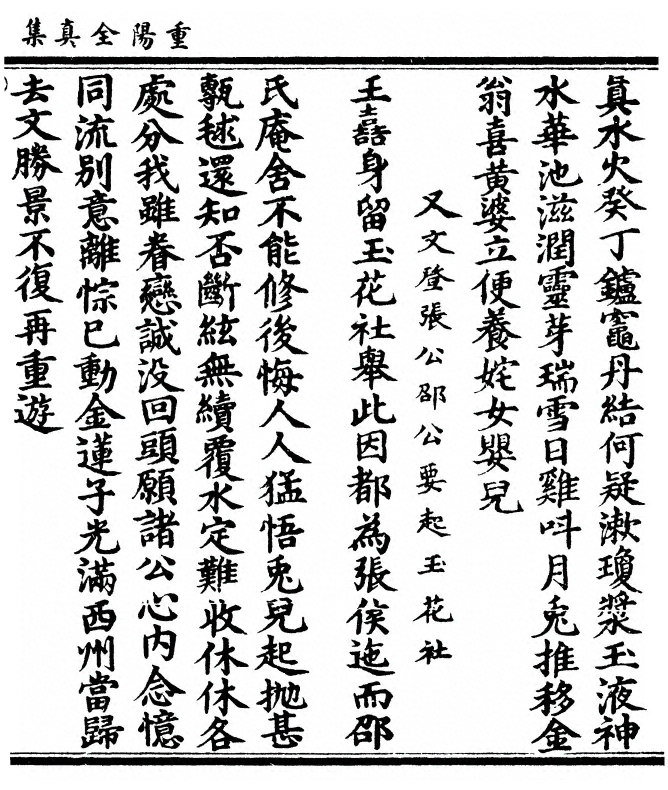 重陽全真集
真水火癸丁鑪竈丹結何疑漱瓊漿玉液神
水華池滋潤靈芽瑞雪日雞呌月兎推移金
翁喜黃婆立便養姹女嬰兒
又文登張公邵公要起玉花社
王嚞身留玉花社舉此因都為張侯迤而邵
氏庵舍不能修後悔人人猛悟兎兒起抛甚
氣毬還知否斷絃無續覆水定難收休休各
處分我雖眷戀誠没回頭願諸公心内念憶
同流别意離悰巳動金蓮子光滿西州當歸
去文勝景不復再重遊